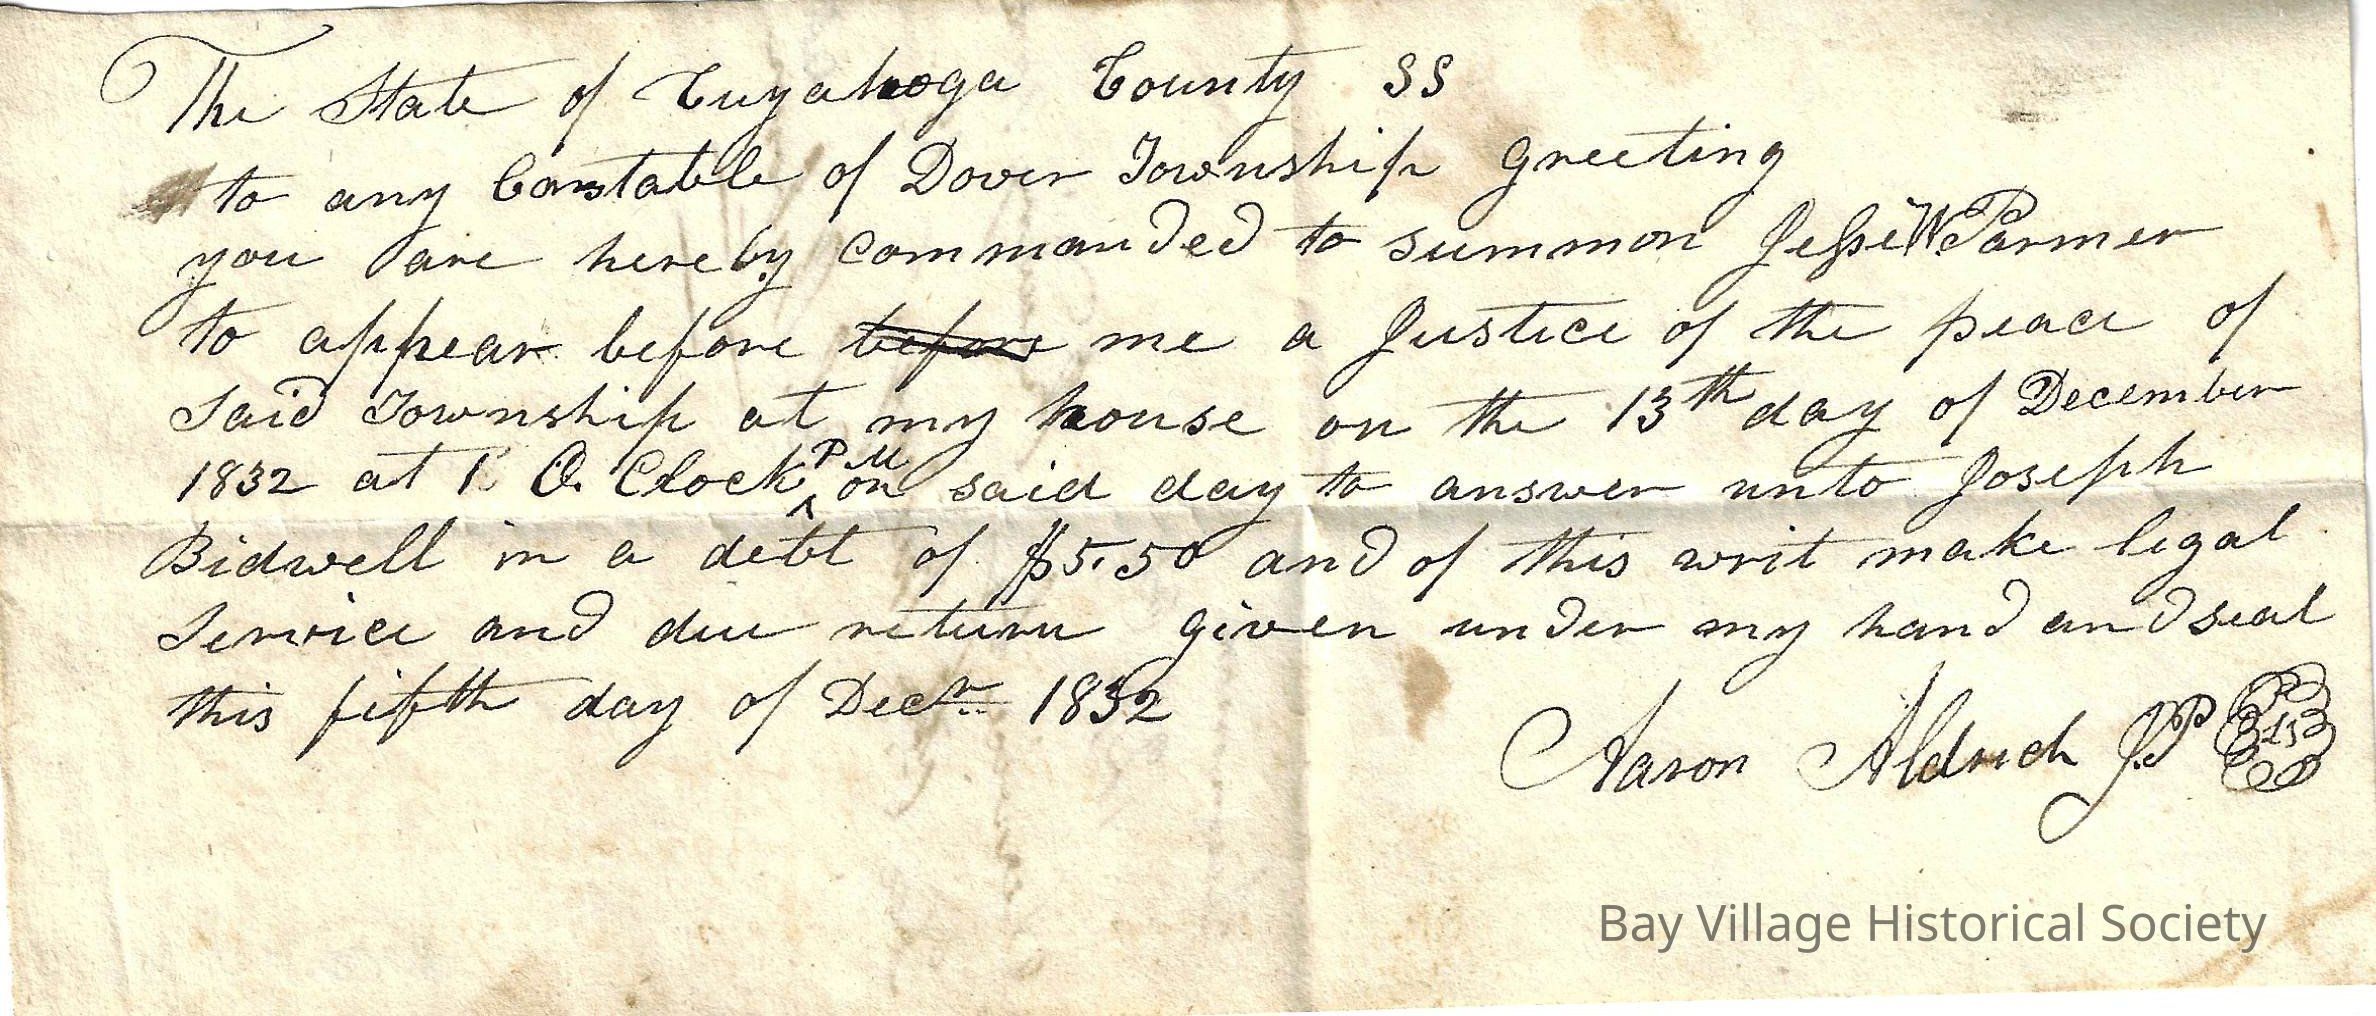 The State of Cuyahoga County SS
to any Constable of Dover Township Greeting
you are hereby Commanded to summon Jessie W Parmer
to appear before before me a Justice of the peace of
Said Township at my house on the 13th day of December
1832 at 1 O. Clock PM on said day to answer unto Joseph
Bidwell in a debt of $5.50 and of this writ make legal
Service and due return given under my hand and seal
this fifth day of Decr 1832
Aaron Aldrich J.P
Bay Village Historical Society